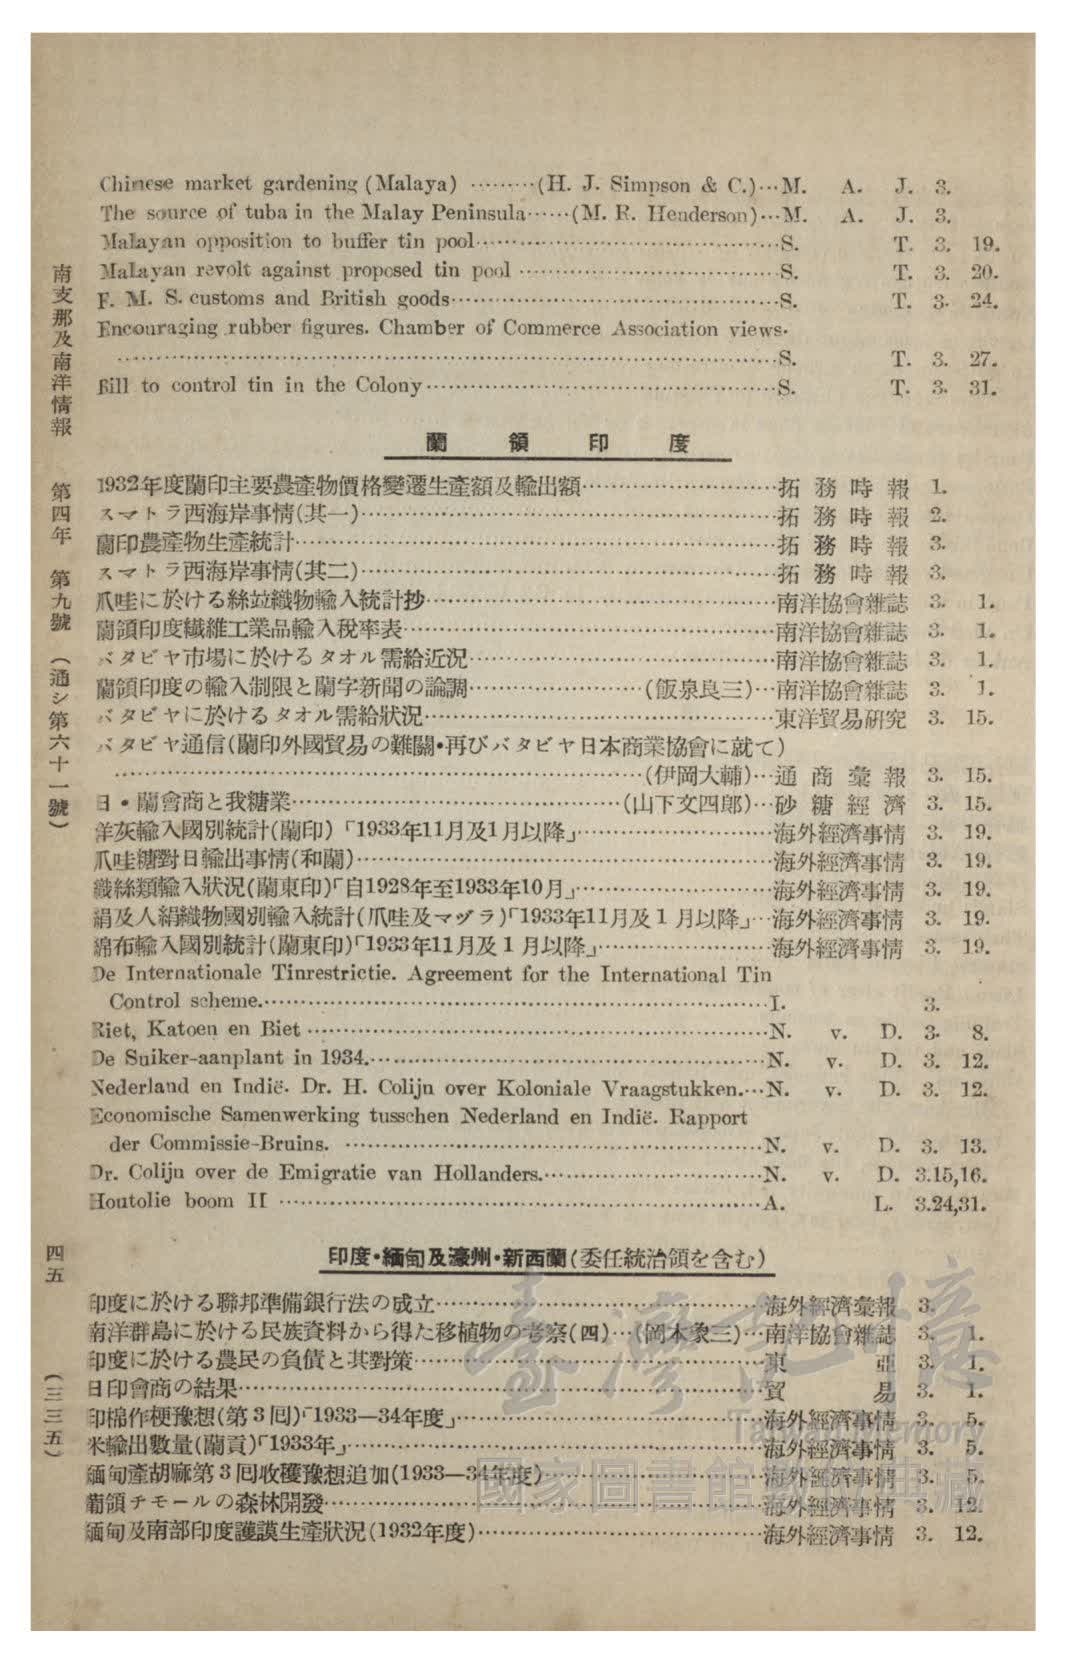 Chinese market gardening (Malaya) ·········(H. J. Simpson & C.)···M. A. J. 3.
The source of tuba in the Malay Peninsula······(M. R. Henderson)···M. A. J. 3.
Malayan opposition to buffer tin pool··········S. T. 3. 19.
Malayan revolt against proposed tin pool ··········S. T. 3. 20.
F. M. S. customs and British goods··········S. T. 3. 24.
Encouraging rubber figures. Chamber of Commerce Association views.
··········S. T. 3. 27.
Bill to control tin in the Colony··········S. T. 3. 31.
蘭領印度
1932年度蘭印主要農產物價格變遷生產額及輸出額··········拓務時報 1.
スマトラ西海岸事情(其一)··········拓務時報 2.
蘭印農產物生產統計··········拓務時報 3.
スマトラ西海岸事情(其二)··········拓務時報 3.
爪哇に於ける絲竝織物輸入統計抄··········南洋協會雜誌 3. 1.
蘭領印度纖維工業品輸入稅率表··········南洋協會雜誌 3. 1.
バタビヤ市場に於けるタオル需給近況··········南洋協會雜誌 3. 1.
蘭領印度の輸入制限と蘭字新聞の論調··········(飯泉良三)···南洋協會雜誌 3. 1.
バタビヤに於けるタオル需給狀況··········東洋貿易研究 3. 15.
バタビヤ通信(蘭印外國貿易の難關•再びバタビヤ日本商業協會に就て)
··········(伊岡大輔)···通商彙報 3. 15.
日•蘭會商と我糖業··········(山下文四郎)···砂糖經濟 3. 15.
洋灰輸入國別統計(蘭印)「1933年11月及1月以降」··········海外經濟事情 3. 19.
爪哇糖對日輸出事情(和蘭)··········海外經濟事情 3. 19.
織絲類輸入狀況(蘭東印)「自1928年至1933年10月」··········海外經濟事情 3. 19.
絹及人絹織物國別輸入統計(爪哇及マヅラ)「1933年11月及1月以降」···海外經濟事情 3. 19.
綿布輸入國別統計(蘭東印)「1933年11月及1月以降」··········海外經濟事情 3. 19.
De Internationale Tinrestrictie. Agreement for the International Tin
Control scheme.··········I. 3.
Riet, Katoen en Biet ··········N. v. D. 3. 8.
De Suiker-aanplant in 1934.··········N. v. D. 3. 12.
Nederland en Indië. Dr. H. Colijn over Koloniale Vraagstukken.···N. v. D. 3. 12.
Economische Samenwerking tusschen Nederland en Indië. Rapport
der Commissie-Bruins. ··········N. v. D. 3. 13.
Dr. Colijn over de Emigratie van Hollanders.··········N. v. D. 3.15,16.
Houtolie boom II ··········A. L. 3.24,31.
印度•緬甸及濠州•新西蘭(委任統治領を含む)
印度に於ける聯邦準備銀行法の成立··········海外經濟彙報 3.
南洋群島に於ける民族資料から得た移植物の考察(四)···(岡本象三)···南洋協會雜誌 3. 1.
印度に於ける農民の負債と其對策··········東亞 3. 1.
日印會商の結果··········貿易 3. 1.
印棉作梗豫想(第3囘)「1933—34年度」··········海外經濟事情 3. 5.
米輸出數量(蘭貢)「1933年」··········海外經濟事情 3. 5.
緬甸產胡麻第3囘收穫豫想追加(1933—34年度)··········海外經濟事情 3. 5.
葡領チモールの森林開發··········海外經濟事情 3. 12.
緬甸及南部印度護謨生產狀況(1932年度)··········海外經濟事情 3. 12.
南支那及南洋情報 第四年 第九號 (通シ第六十一號)
四五
(三三五)
臺灣記憶
Taiwan Memory
國家圖書館數位典藏